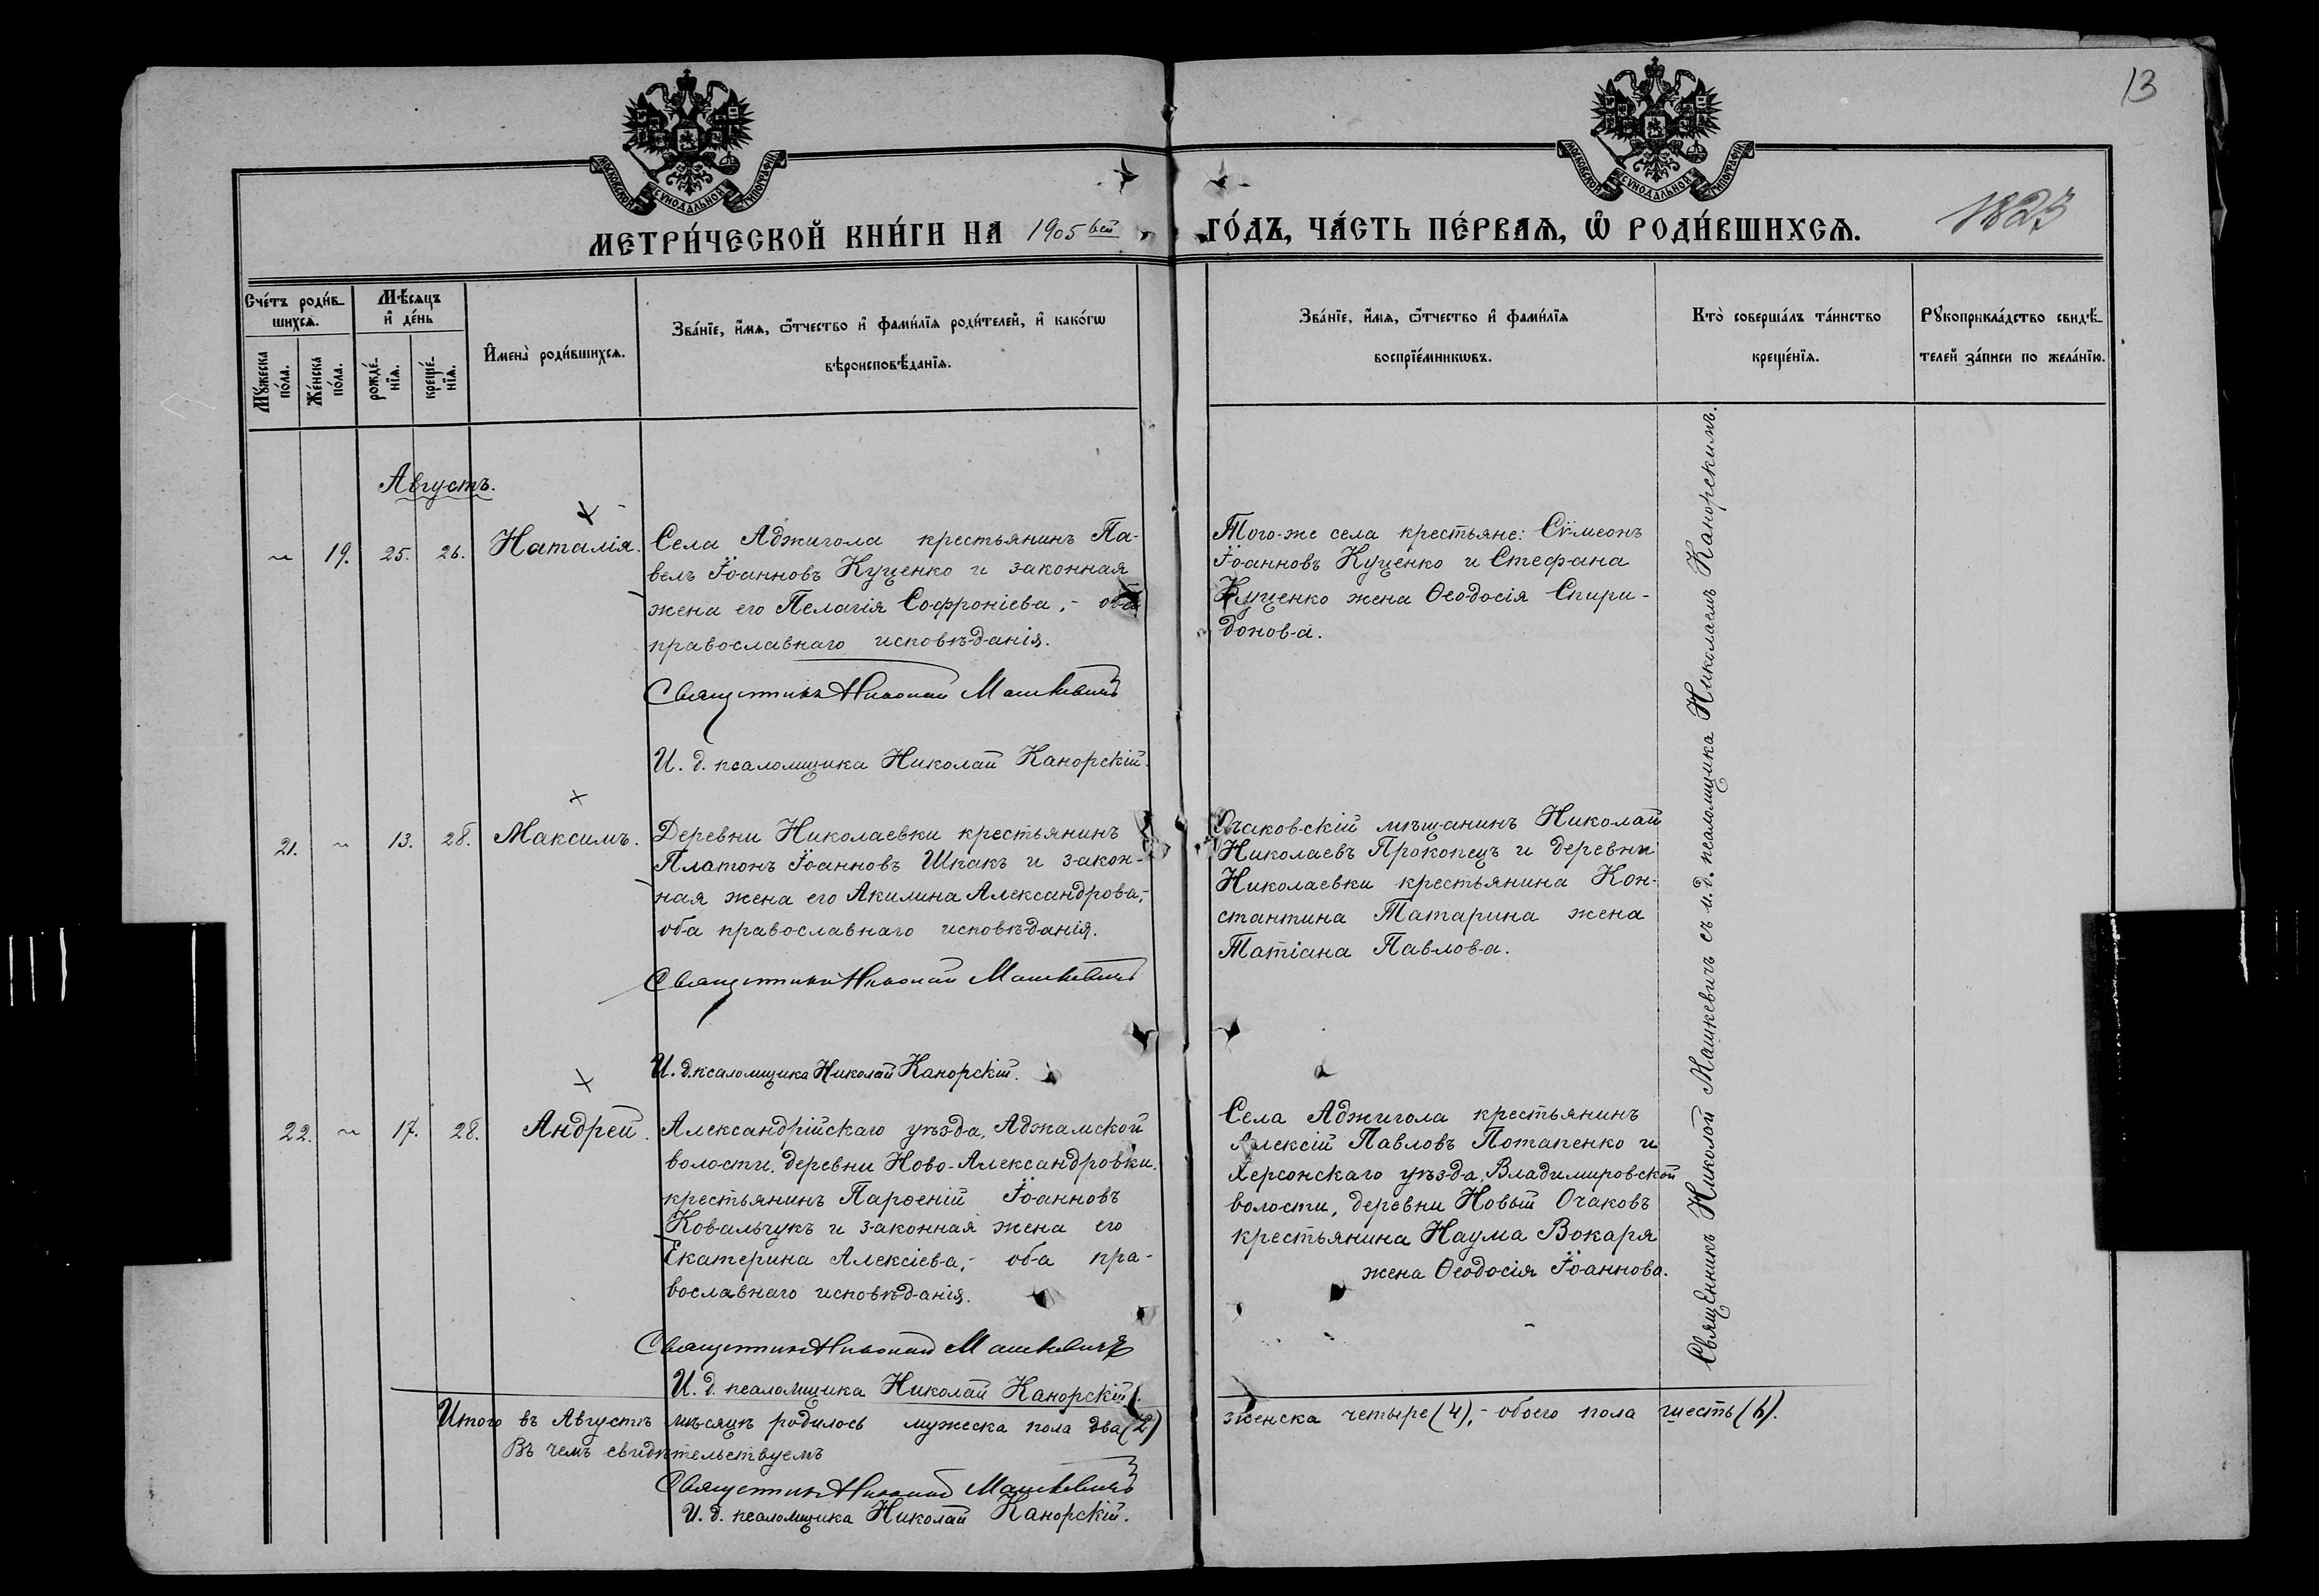 13
1823
МОСКОВСКОЙ СѴНОДАЛЬНОЙ ТИПОГРАФІИ.
МОСКОВСКОЙ СѴНОДАЛЬНОЙ ТИПОГРАФІИ.
МЕТРИ́ЧЕСКОЙ КНИ́ГИ НА 1905вый ГО́ДЪ, ЧА́СТЬ ПЕ́РВАѦ, Ѡ҆ РОДИ́ВШИХСѦ.
Сче́тъ роди́в-
шихсѧ.
Мꙋ́жеска
по́ла.
Же́нска
по́ла.
Мѣ́сѧцъ
и҆ де́нь
рожде́-
нїѧ.
креще́-
нїѧ.
И҆мена̀ роди́вшихсѧ.
Зва́нїе, и҆́мѧ, ѻ҆́тчество и҆ фами́лїѧ роди́телей, и҆ како́гѡ
вѣроисповѣ́данїѧ.
Зва́нїе, и҆́мѧ, ѻ҆́тчество и҆ фами́лїѧ
воспрїе́мникѡвъ.
Кто̀ соверша́лъ та́инство
креще́нїѧ.
Рꙋкоприкла́дство свидѣ́-
телей за́писи по жела́нїю.
Августъ.
~ 19. 25. 26. Наталія.
Села Аджигола крестьянинъ Па-
велъ Іоанновъ Куценко и законная
жена его Пелагія Софроніева,- оба
православнаго исповѣданія.
Священникъ Николай Машкевичъ
И. д. псаломщика Николай Канорскій.
Того-же села крестьяне: Сѵмеонъ
Іоанновъ Куценко и Стефана
Куценко жена Ѳеодосія Спири-
донова.
21. ~ 13. 28. Максимъ.
Деревни Николаевки крестьянинъ
Платонъ Іоанновъ Шпакъ и закон-
ная жена его Акилина Александрова,-
оба православнаго исповѣданія.
Священникъ Николай Машкевичъ
И. д. псаломщика Николай Канорскій.
Очаковскій мѣщанинъ Николай
Николаевъ Прокопецъ и деревни
Николаевки крестьянина Кон-
стантина Татарина жена
Татіана Павлова.
22. ~ 17. 28. Андрей.
Александрійскаго уѣзда, Аджамской
волости, деревни Ново-Александровки
крестьянинъ Парѳеній Іоанновъ
Ковальчукъ и законная жена его
Екатерина Алексіева,- оба пра-
вославнаго исповѣданія.
Священникъ Николай Машкевичъ
И. д. псаломщика Николай Канорскій.
Села Аджигола крестьянинъ
Алексій Павловъ Потапенко и
Херсонскаго уѣзда, Владимировской
волости, деревни Новый Очаковъ
крестьянина Наума Вокаря
жена Ѳеодосія Іоаннова.
Священникъ Николай Машкевичъ съ и.д. псаломщика Николаемъ Канорскимъ.
Итого въ Августѣ мѣсяцѣ родилось мужеска пола два (2) женска четыре (4),- обоего пола шесть (6).
Въ чемъ свидѣтельствуемъ
Священникъ Николай Машкевичъ
И. д. псаломщика Николай Канорскій.